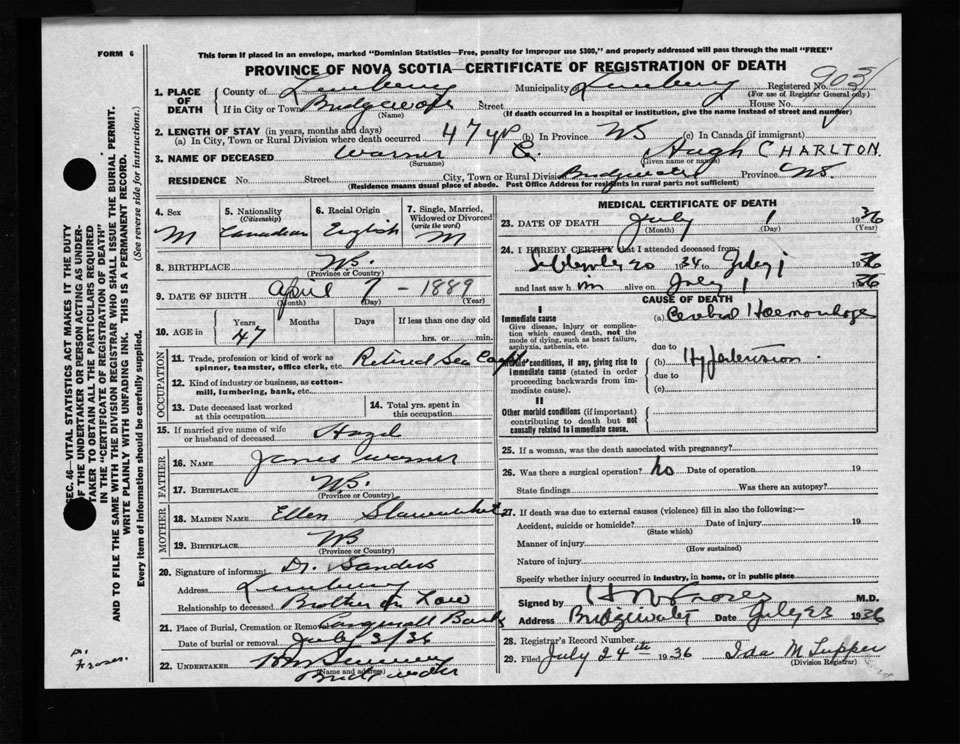 FORM 6
This form if placed in an envelope, marked "Dominion Statistics—Free, penalty for improper use $300," and properly addressed will pass through the mail "FREE"
PROVINCE OF NOVA SCOTIA—CERTIFICATE OF REGISTRATION OF DEATH
1. PLACE OF DEATH
County of Lunenburg Municipality Lunenburg Registered No. 903
(For use of Registrar General only)
If in City or Town Bridgewater Street House No.
(Name) (If death occurred in a hospital or institution, give the name instead of street and number)
2. LENGTH OF STAY (in years, months and days)
(a) In City, Town or Rural Division where death occurred 47 yr (b) In Province NS (c) In Canada (if immigrant)
3. NAME OF DECEASED Warner C. Hugh CHARLTON.
(Surname) (Given name or names)
RESIDENCE No. Street City, Town or Rural Division Bridgewater Province NS.
(Residence means usual place of abode. Post Office Address for residents in rural parts not sufficient)
4. Sex M
5. Nationality (Citizenship) Canadian
6. Racial Origin English
7. Single, Married, Widowed or Divorced (write the word) M
8. BIRTHPLACE NS.
(Province or Country)
9. DATE OF BIRTH April 7 - 1889
(Month) (Day) (Year)
10. AGE in Years 47 Months Days If less than one day old
hrs. or min.
OCCUPATION
11. Trade, profession or kind of work as spinner, teamster, office clerk, etc. Retired Sea Capt
12. Kind of industry or business, as cotton-mill, lumbering, bank, etc.
13. Date deceased last worked at this occupation
14. Total yrs. spent in this occupation
15. If married give name of wife or husband of deceased Hazel
FATHER
16. NAME James Warner
17. BIRTHPLACE NS.
(Province or Country)
MOTHER
18. MAIDEN NAME Ellen
19. BIRTHPLACE NS
(Province or Country)
20. Signature of informant Dr. Sanders
Address Lunenburg
Relationship to deceased Brother in Law
21. Place of Burial, Cremation or Removal
Date of burial or removal July 3/36
22. UNDERTAKER
(Name and address) Bridgewater
MEDICAL CERTIFICATE OF DEATH
23. DATE OF DEATH July 1 1936
(Month) (Day) (Year)
24. I HEREBY CERTIFY that I attended deceased from:
September 20 1934 to July 1 1936
and last saw him alive on July 1 1936
CAUSE OF DEATH
I
Immediate cause
Give disease, injury or complication which caused death, not the mode of dying, such as heart failure, asphyxia, asthenia, etc.
(a) Cerebral Haemorrhage
due to
Morbid conditions, if any, giving rise to immediate cause (stated in order proceeding backwards from immediate cause).
(b) Hypertension.
due to
(c)
II
Other morbid conditions (if important) contributing to death but not causally related to immediate cause.
25. If a woman, was the death associated with pregnancy?
26. Was there a surgical operation? No Date of operation 19
State findings Was there an autopsy?
27. If death was due to external causes (violence) fill in also the following:—
Accident, suicide or homicide? Date of injury 19
(State which)
Manner of injury
(How sustained)
Nature of injury
Specify whether injury occurred in industry, in home, or in public place
Signed by M.D.
Address Bridgewater Date July 23 1936
28. Registrar's Record Number
29. Filed July 24th 1936 Ida M Tupper
(Division Registrar)
SEC. 46—VITAL STATISTICS ACT MAKES IT THE DUTY
OF THE UNDERTAKER OR PERSON ACTING AS UNDER-
TAKER TO OBTAIN ALL THE PARTICULARS REQUIRED
IN THE "CERTIFICATE OF REGISTRATION OF DEATH"
AND TO FILE THE SAME WITH THE DIVISION REGISTRAR WHO SHALL ISSUE THE BURIAL PERMIT.
WRITE PLAINLY WITH UNFADING INK. THIS IS A PERMANENT RECORD.
Every item of information should be carefully supplied. (See reverse side for instructions.)
Fraser.